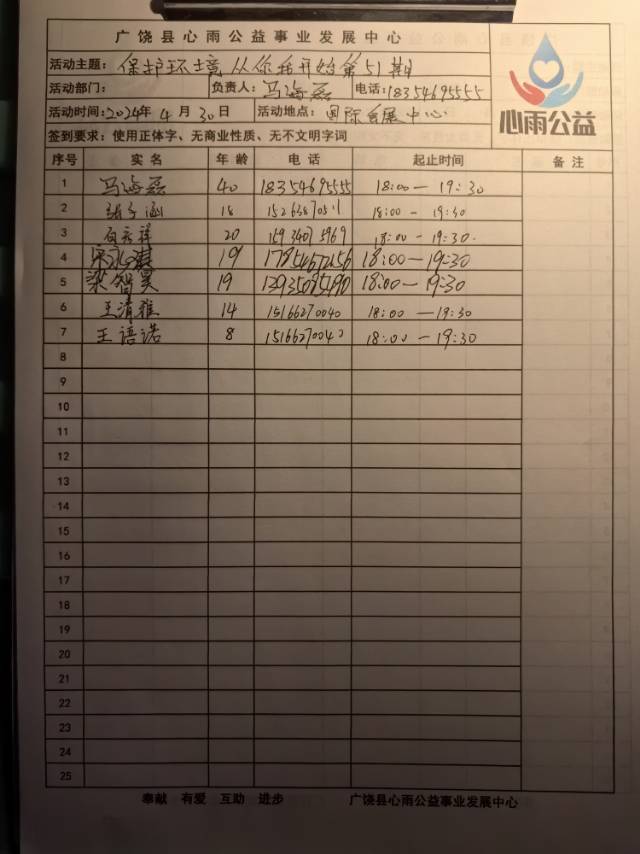 广饶县心雨公益事业发展中心
活动主题: 保护环境从你我开始第51期
活动部门: 负责人: 马海磊 电话:18354695555
活动时间:2024年 4月 30日 活动地点: 国际会展中心
心雨公益
签到要求: 使用正体字、无商业性质、无不文明字词
序号 实名 年龄 电话 起止时间 备注
1 马海磊 40 18354695555 18:00—19:30
2 18 18:00-19:30
3 20 18:00-19:30.
4 19 18:00—19:30
5 梁智昊 19 18:00—19:30
6 王清雅 14 15166270040 18:00—19:30
7 王语诺 8 15166270040 18:00—19:30
8
9
10
11
12
13
14
15
16
17
18
19
20
21
22
23
24
25
奉献 有爱 互助 进步 广饶县心雨公益事业发展中心